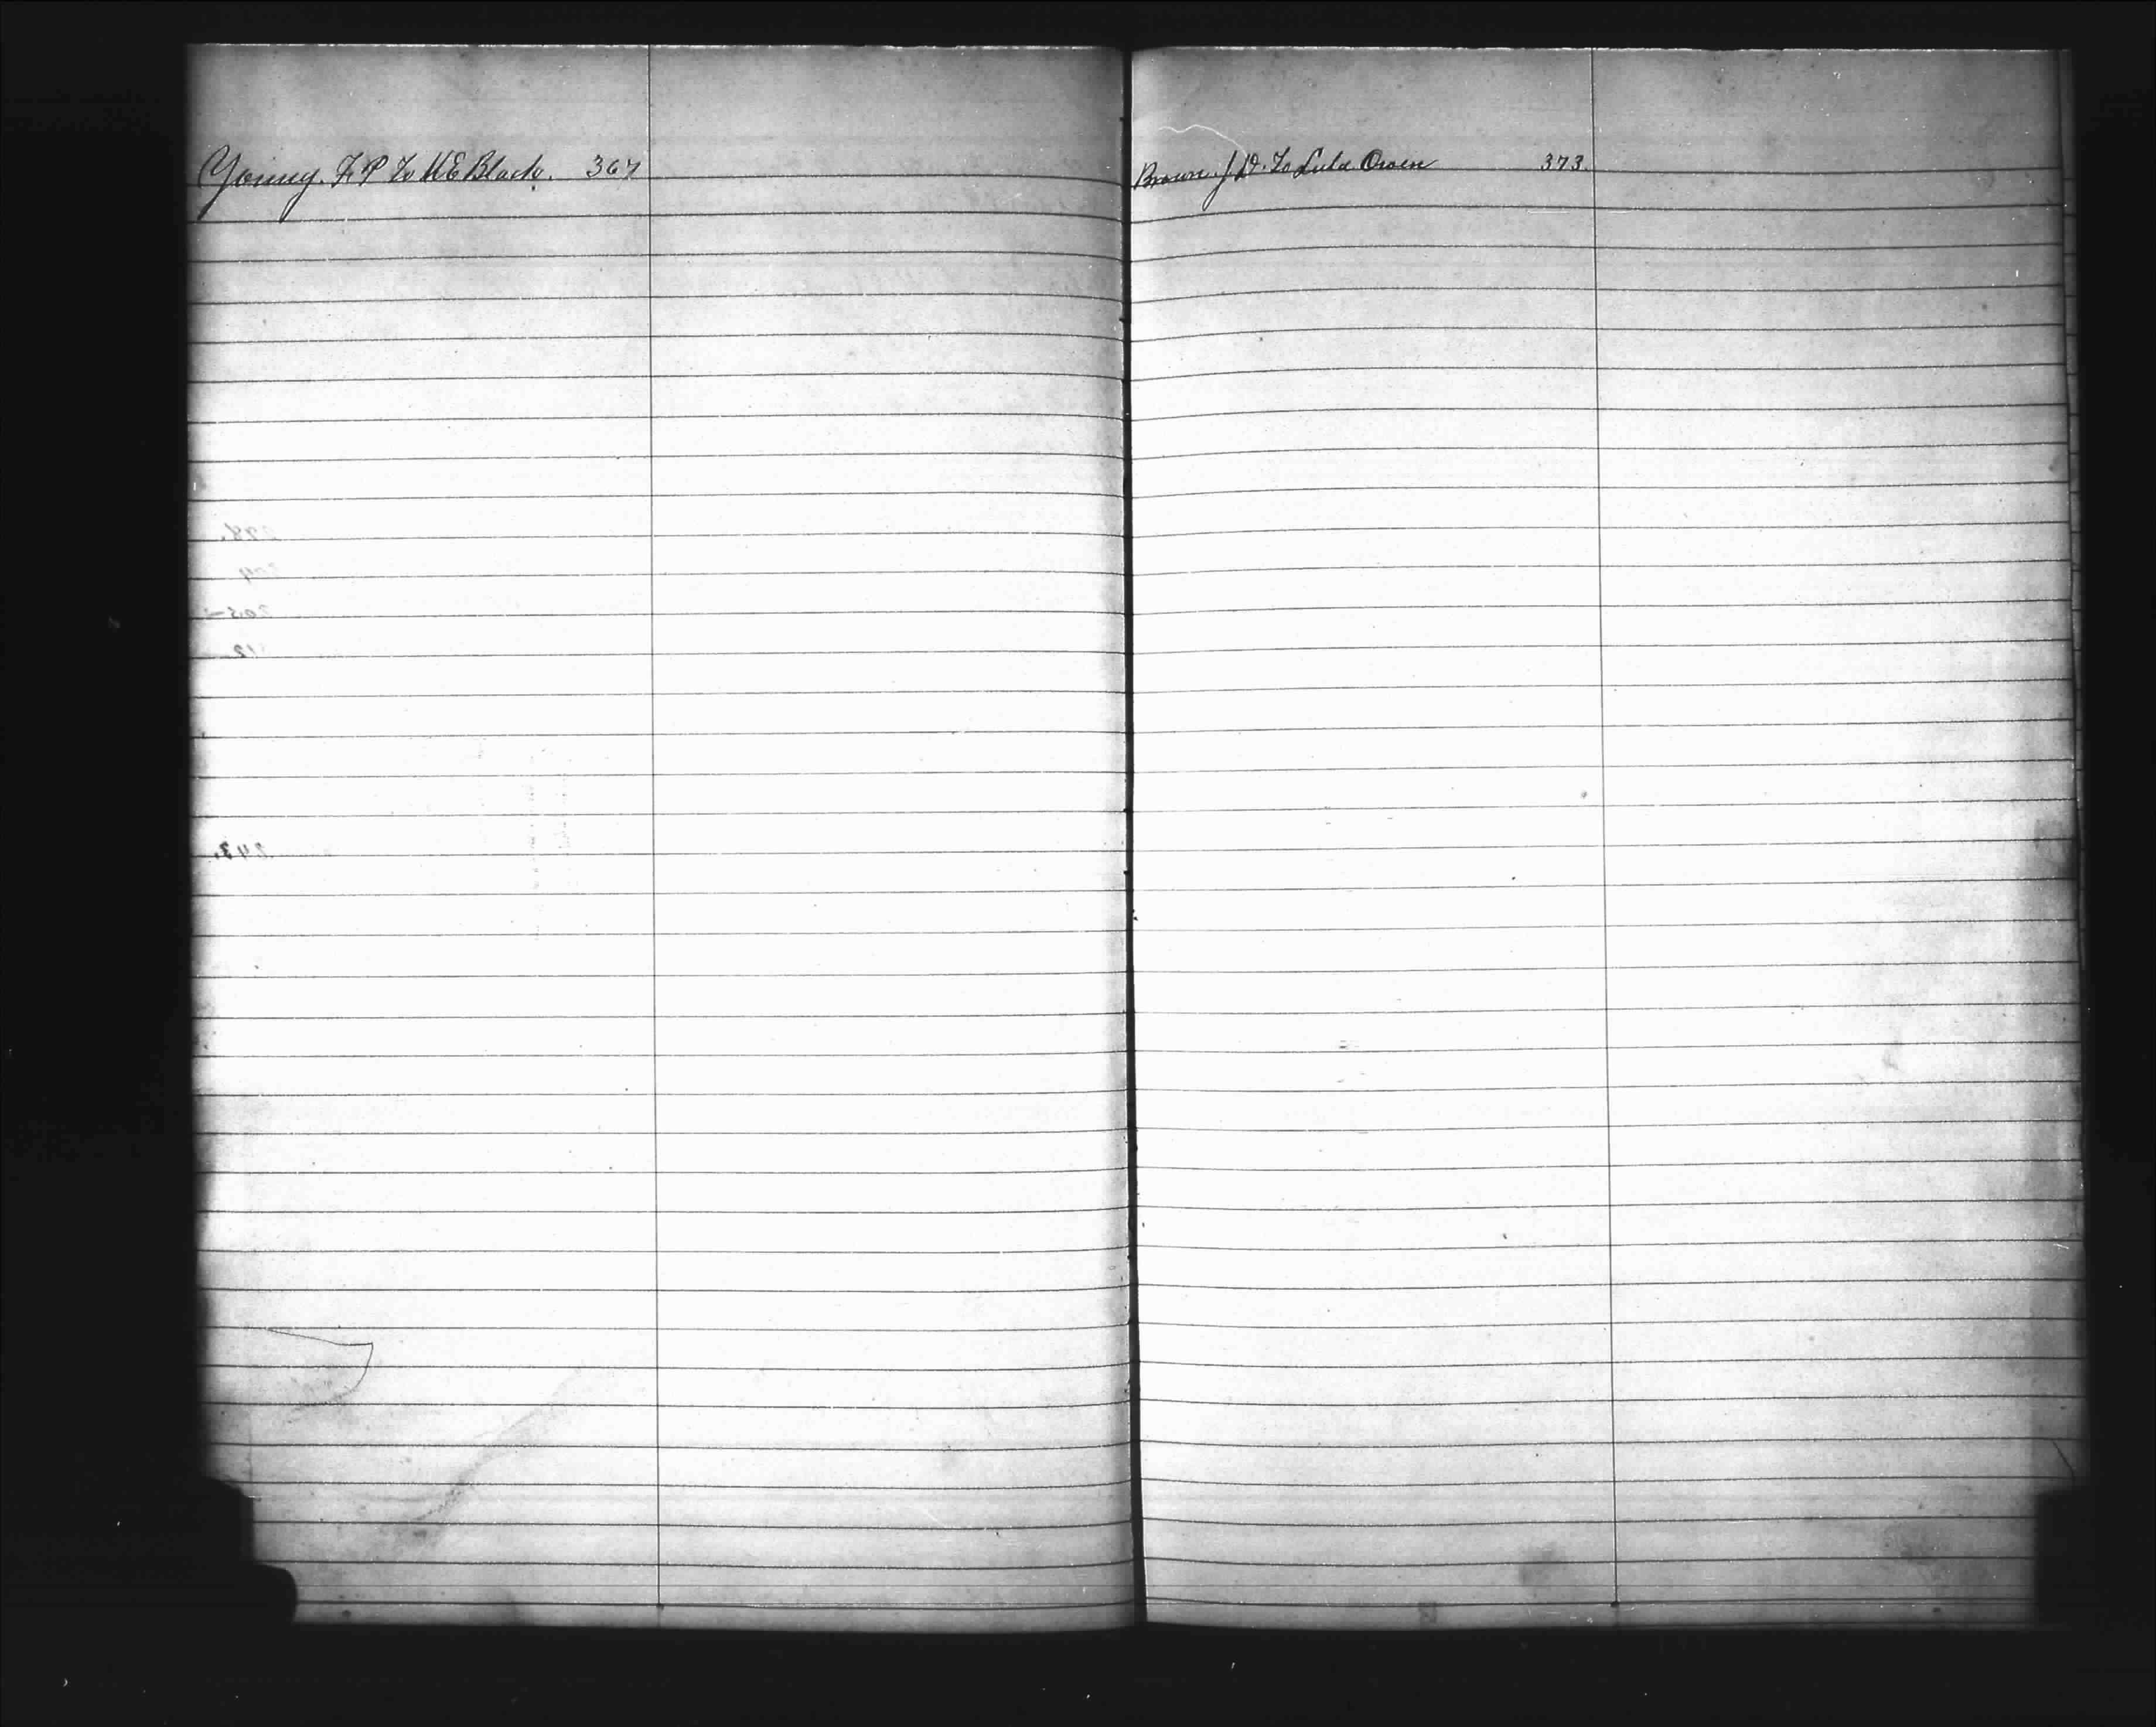 Young. F. P To M E Black. 367
Brown. J. D. To Lula Owen 373.